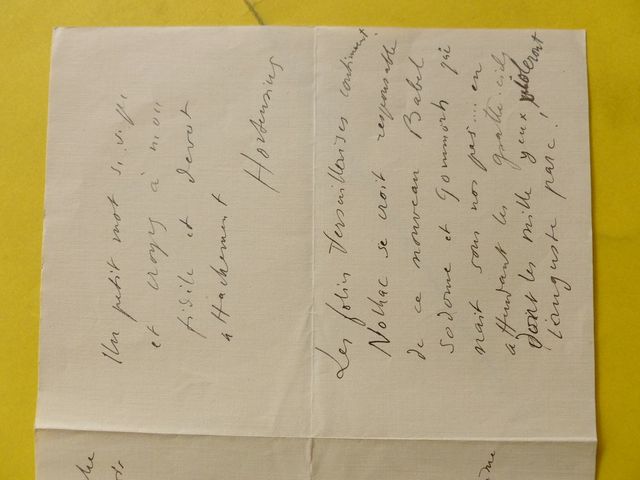 Un petit mot S. V. P.
et croyez à mon
fidèle et devot
attachement
Hortensius
Les folies Versaillaises continuent
Nolhac se croit responsable
de ce nouveau Babel
Sodome et Gommorh qui
nait sous nos pas... en
attendant les gratte-ciels
dont les mille yeux violeront
l'auguste parc!